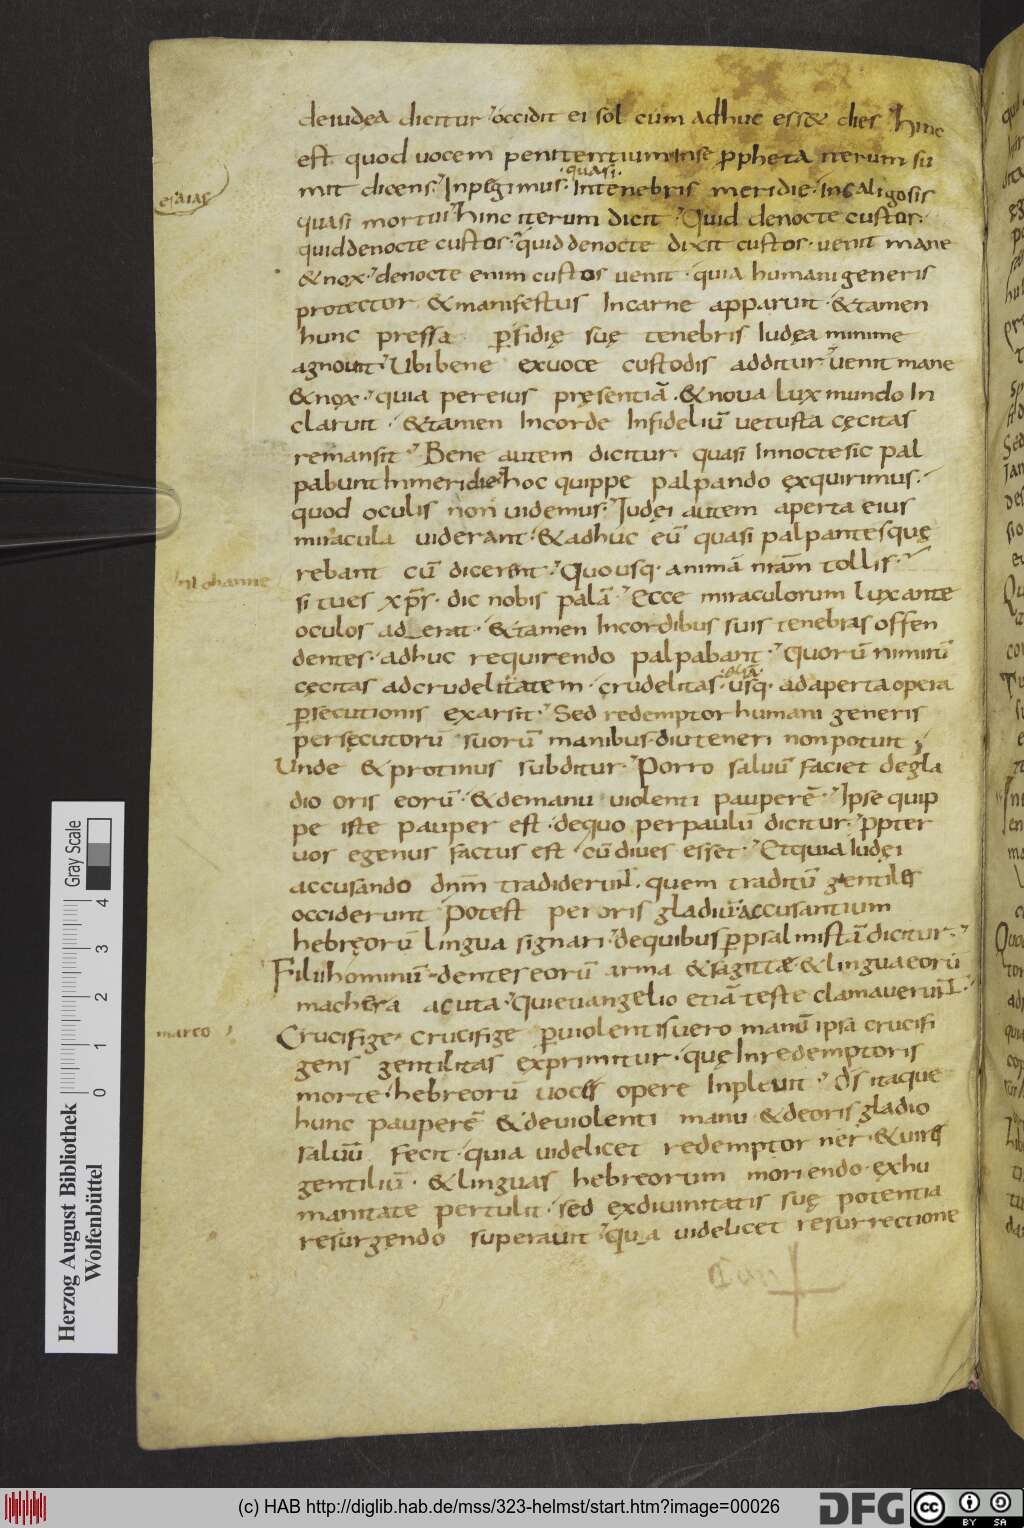 deiudęa dicitur occidit ei sol cum adhuc ess& dies hinc
est quod uocem penitentium inse ppheta iterum su
quasi
mit dicens Inpegimus Intenebris meridie Incaligosis
esaias
quasi mortui hinc iterum dicit Quid denocte custos
quiddenocte custos quid denocte dixit custos uenit mane
&nox denocte enim custos uenit quia humani generis
protector &manifestus Incarne apparuit &tamen
hunc pressa psidię suę tenebris Iudęa minime
agnouit Ubi bene exuoce custodis additur uenit mane
&nox quia pereius pręsentiā &noua lux mundo In
claruit &tamen Incorde Infideliū uetusta cęcitas
remansit Bene autem dicitur quasi Innoctesic pal
pabunt Inmeridie hoc quippe palpando exquirimus
quod oculis non uidemus Iudęi autem aperta eius
miracula uiderant &adhuc eū quasi palpantesquę
rebant cū dicerent Quousq animā nrām tollis
Inlohanne
si tues xp̄s dic nobis palā Ecce miraculorum lux ante
oculos ad erat &tamen Incordibus suis tenebras offen
dentes adhuc requirendo palpabant Quorū nimirū
cęcitas adcrudelitatem crudelitas usq adaperta opera
psecutionis exarsit Sed redemptor humani generis
persęcutorū suorū manibus diuteneri non potuit
Unde &protinus subditur Porro saluū faciet degla
dio oris eorū &demanu uiolenti pauperē Ipse quip
pe iste pauper est dequo perpaulū dicitur ppter
uos egenus factus est cū diues esset Et quia Iudęi
accusando dnm̄ tradiderunt quem traditū gentiles
occiderunt Potest peroris gladiū accusantium
hebręorū lingua signari dequibus p psalmistā dicitur
Filii hominū dentes eorū arma &sagittæ &lingua eorū
machera acuta Qui euangelio etiā teste clamauerunt
marco
Crucifige crucifige p uiolentis uero manū ipsa crucifi
gens gentilitas exprimitur quę Inredemptoris
morte hebreorū uoces opere Inpleuit ds̄ itaque
hunc pauperē &deuiolenti manu &deoris gladio
saluū fecit quia uidelicet redemptor nēr &uires
gentiliū &linguas hebreorum moriendo exhu
manitate pertulit sed exdiuinitatis suę potentia
resurgendo superauit quia uidelicet resurrectione
Herzog August Bibliothek
Wolfenbüttel
Gray Scale
0 1 2 3 4
(c) HAB http://diglib.hab.de/mss/323-helmst/start.htm?image=00026
DFG
cc BY SA